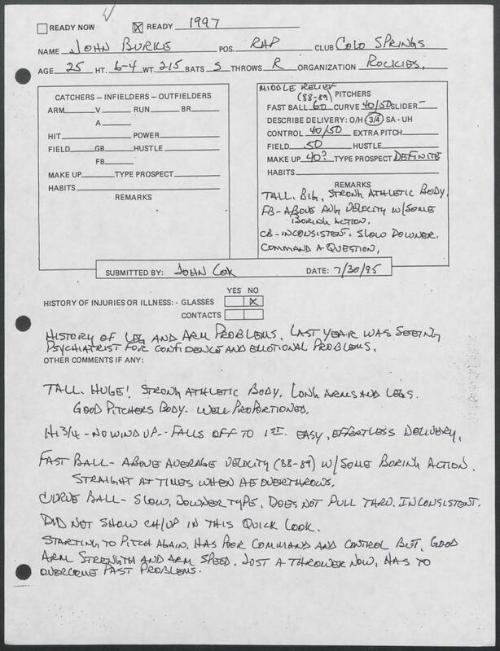 READY NOW ☒ READY 1997
NAME JOHN BURKE POS. RHP CLUB COLO SPRINGS
AGE 25 HT. 6-4 WT. 215 BATS S THROWS R ORGANIZATION ROCKIES.
CATCHERS – INFIELDERS – OUTFIELDERS
ARM V RUN BR
A
HIT POWER
FIELD GB HUSTLE
FB
MAKE UP TYPE PROSPECT
HABITS
REMARKS
MIDDLE RELIEF
(88-89) PITCHERS
FAST BALL 60 CURVE 40/50 SLIDER –
DESCRIBE DELIVERY: O/H 3/4 SA - UH
CONTROL 40/50 EXTRA PITCH
FIELD 50 HUSTLE
MAKE UP 40? TYPE PROSPECT DEFINITE
HABITS
REMARKS
TALL. BIG, STRONG ATHLETIC BODY.
FB-ABOVE AVG VELOCITY W/SOME
BORING ACTION.
CB-INCONSISTENT. SLOW DOWNER.
COMMAND A QUESTION.
SUBMITTED BY: JOHN COX DATE: 7/30/95
YES NO
HISTORY OF INJURIES OR ILLNESS: - GLASSES X
CONTACTS
HISTORY OF LEG AND ARM PROBLEMS. LAST YEAR WAS SEEING
PSYCHIATRIST FOR CONFIDENCE AND EMOTIONAL PROBLEMS.
OTHER COMMENTS IF ANY:
TALL. HUGE! STRONG ATHLETIC BODY. LONG ARMS AND LEGS.
GOOD PITCHERS BODY. WELL PROPORTIONED.
HI 3/4 - NO WIND UP - FALLS OFF TO 1ST. EASY, EFFORTLESS DELIVERY.
FAST BALL - ABOVE AVERAGE VELOCITY (88-89) W/SOME BORING ACTION.
STRAIGHT AT TIMES WHEN HE OVERTHROWS.
CURVE BALL - SLOW, DOWNER TYPE, DOES NOT PULL THRU. INCONSISTENT.
DID NOT SHOW CH/UP IN THIS QUICK LOOK.
STARTING TO PITCH AGAIN. HAS POOR COMMAND AND CONTROL BUT, GOOD
ARM STRENGTH AND ARM SPEED. JUST A THROWER NOW, HAS TO
OVERCOME PAST PROBLEMS.